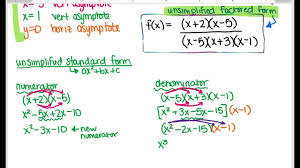 x=5 vert asymptote
x=1 vert asymptote
y=0 horiz asymptote
unsimplified factored form
f(x) = (x+2)(x-5)
(x-5)(x+3)(x-1)
unsimplified standard form
ax²+bx+c
numerator
(x+2)(x-5)
x²-5x+2x-10
x²-3x-10 ← new
numerator
denominator
(x-5)(x+3)(x-1)
[x²+3x-5x-15](x-1)
(x²-2x-15)(x-1)
x³